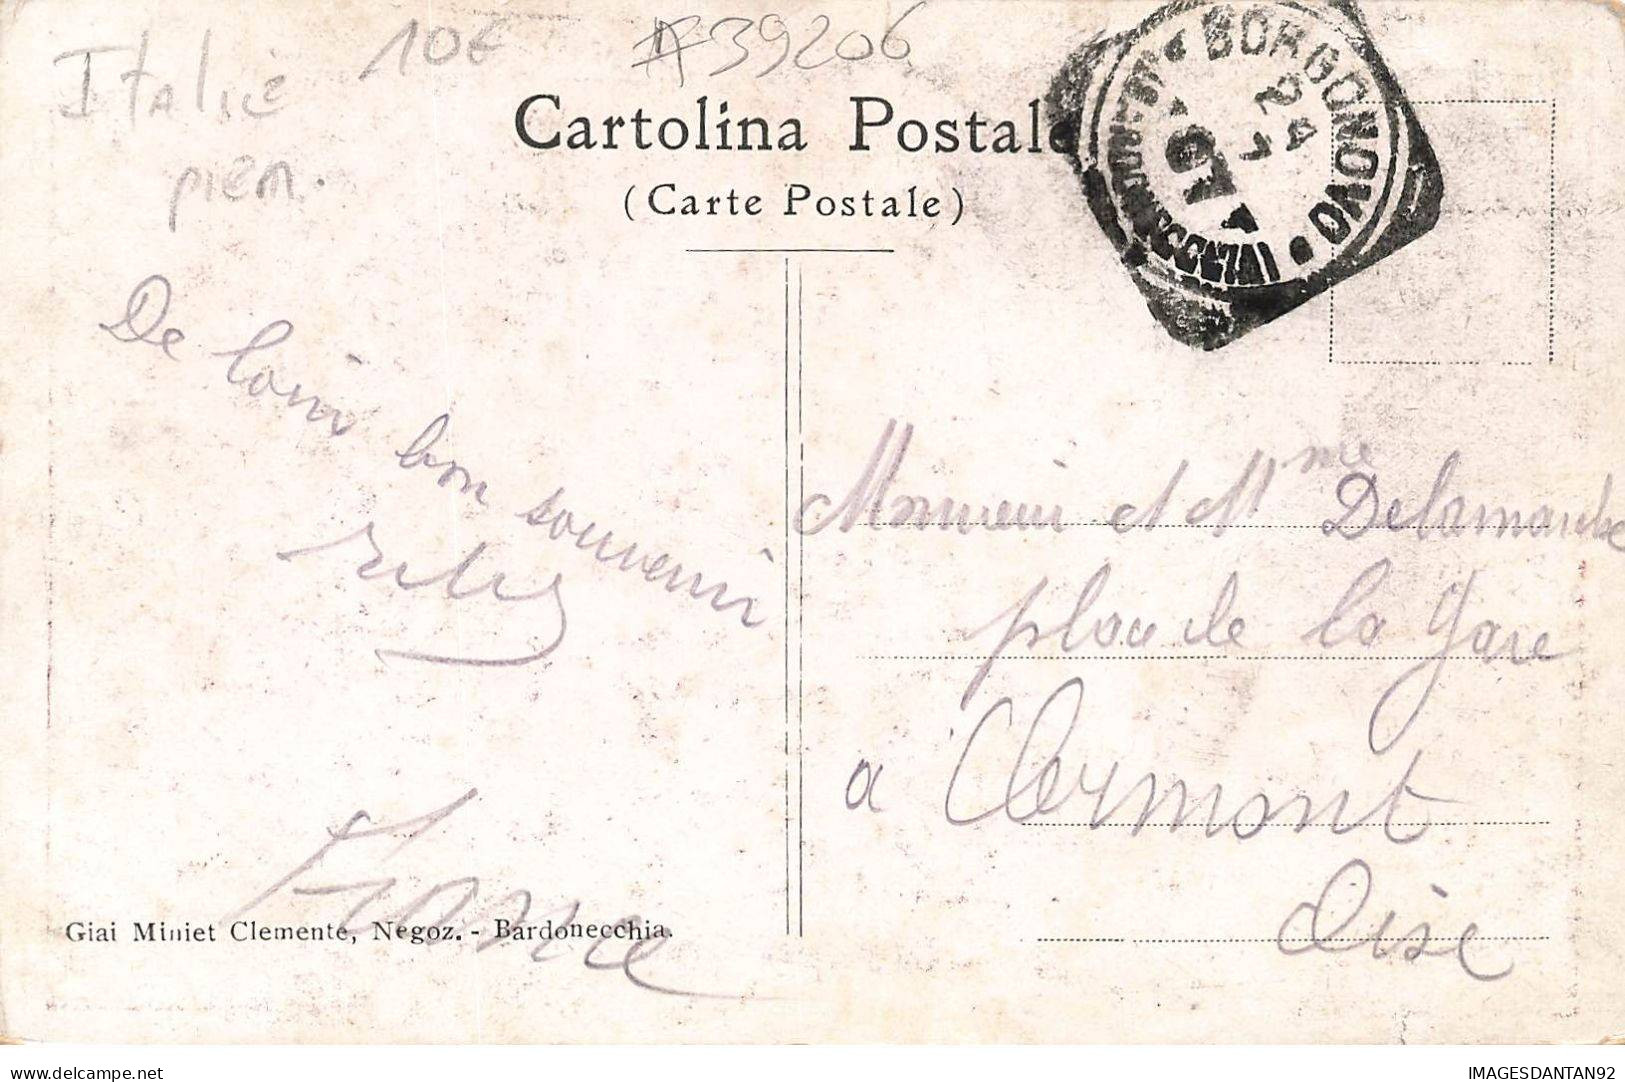 Italie 10€ 39206
piem.
Cartolina Postale
(Carte Postale)
BORGONOVO
24
7
07
De loin bon souvenir
Monsieur et Mme Delamarche
place de la Gare
a Clermont
Oise
France
Giai Miniet Clemente, Negoz. - Bardonecchia.
IMAGESDANTAN92